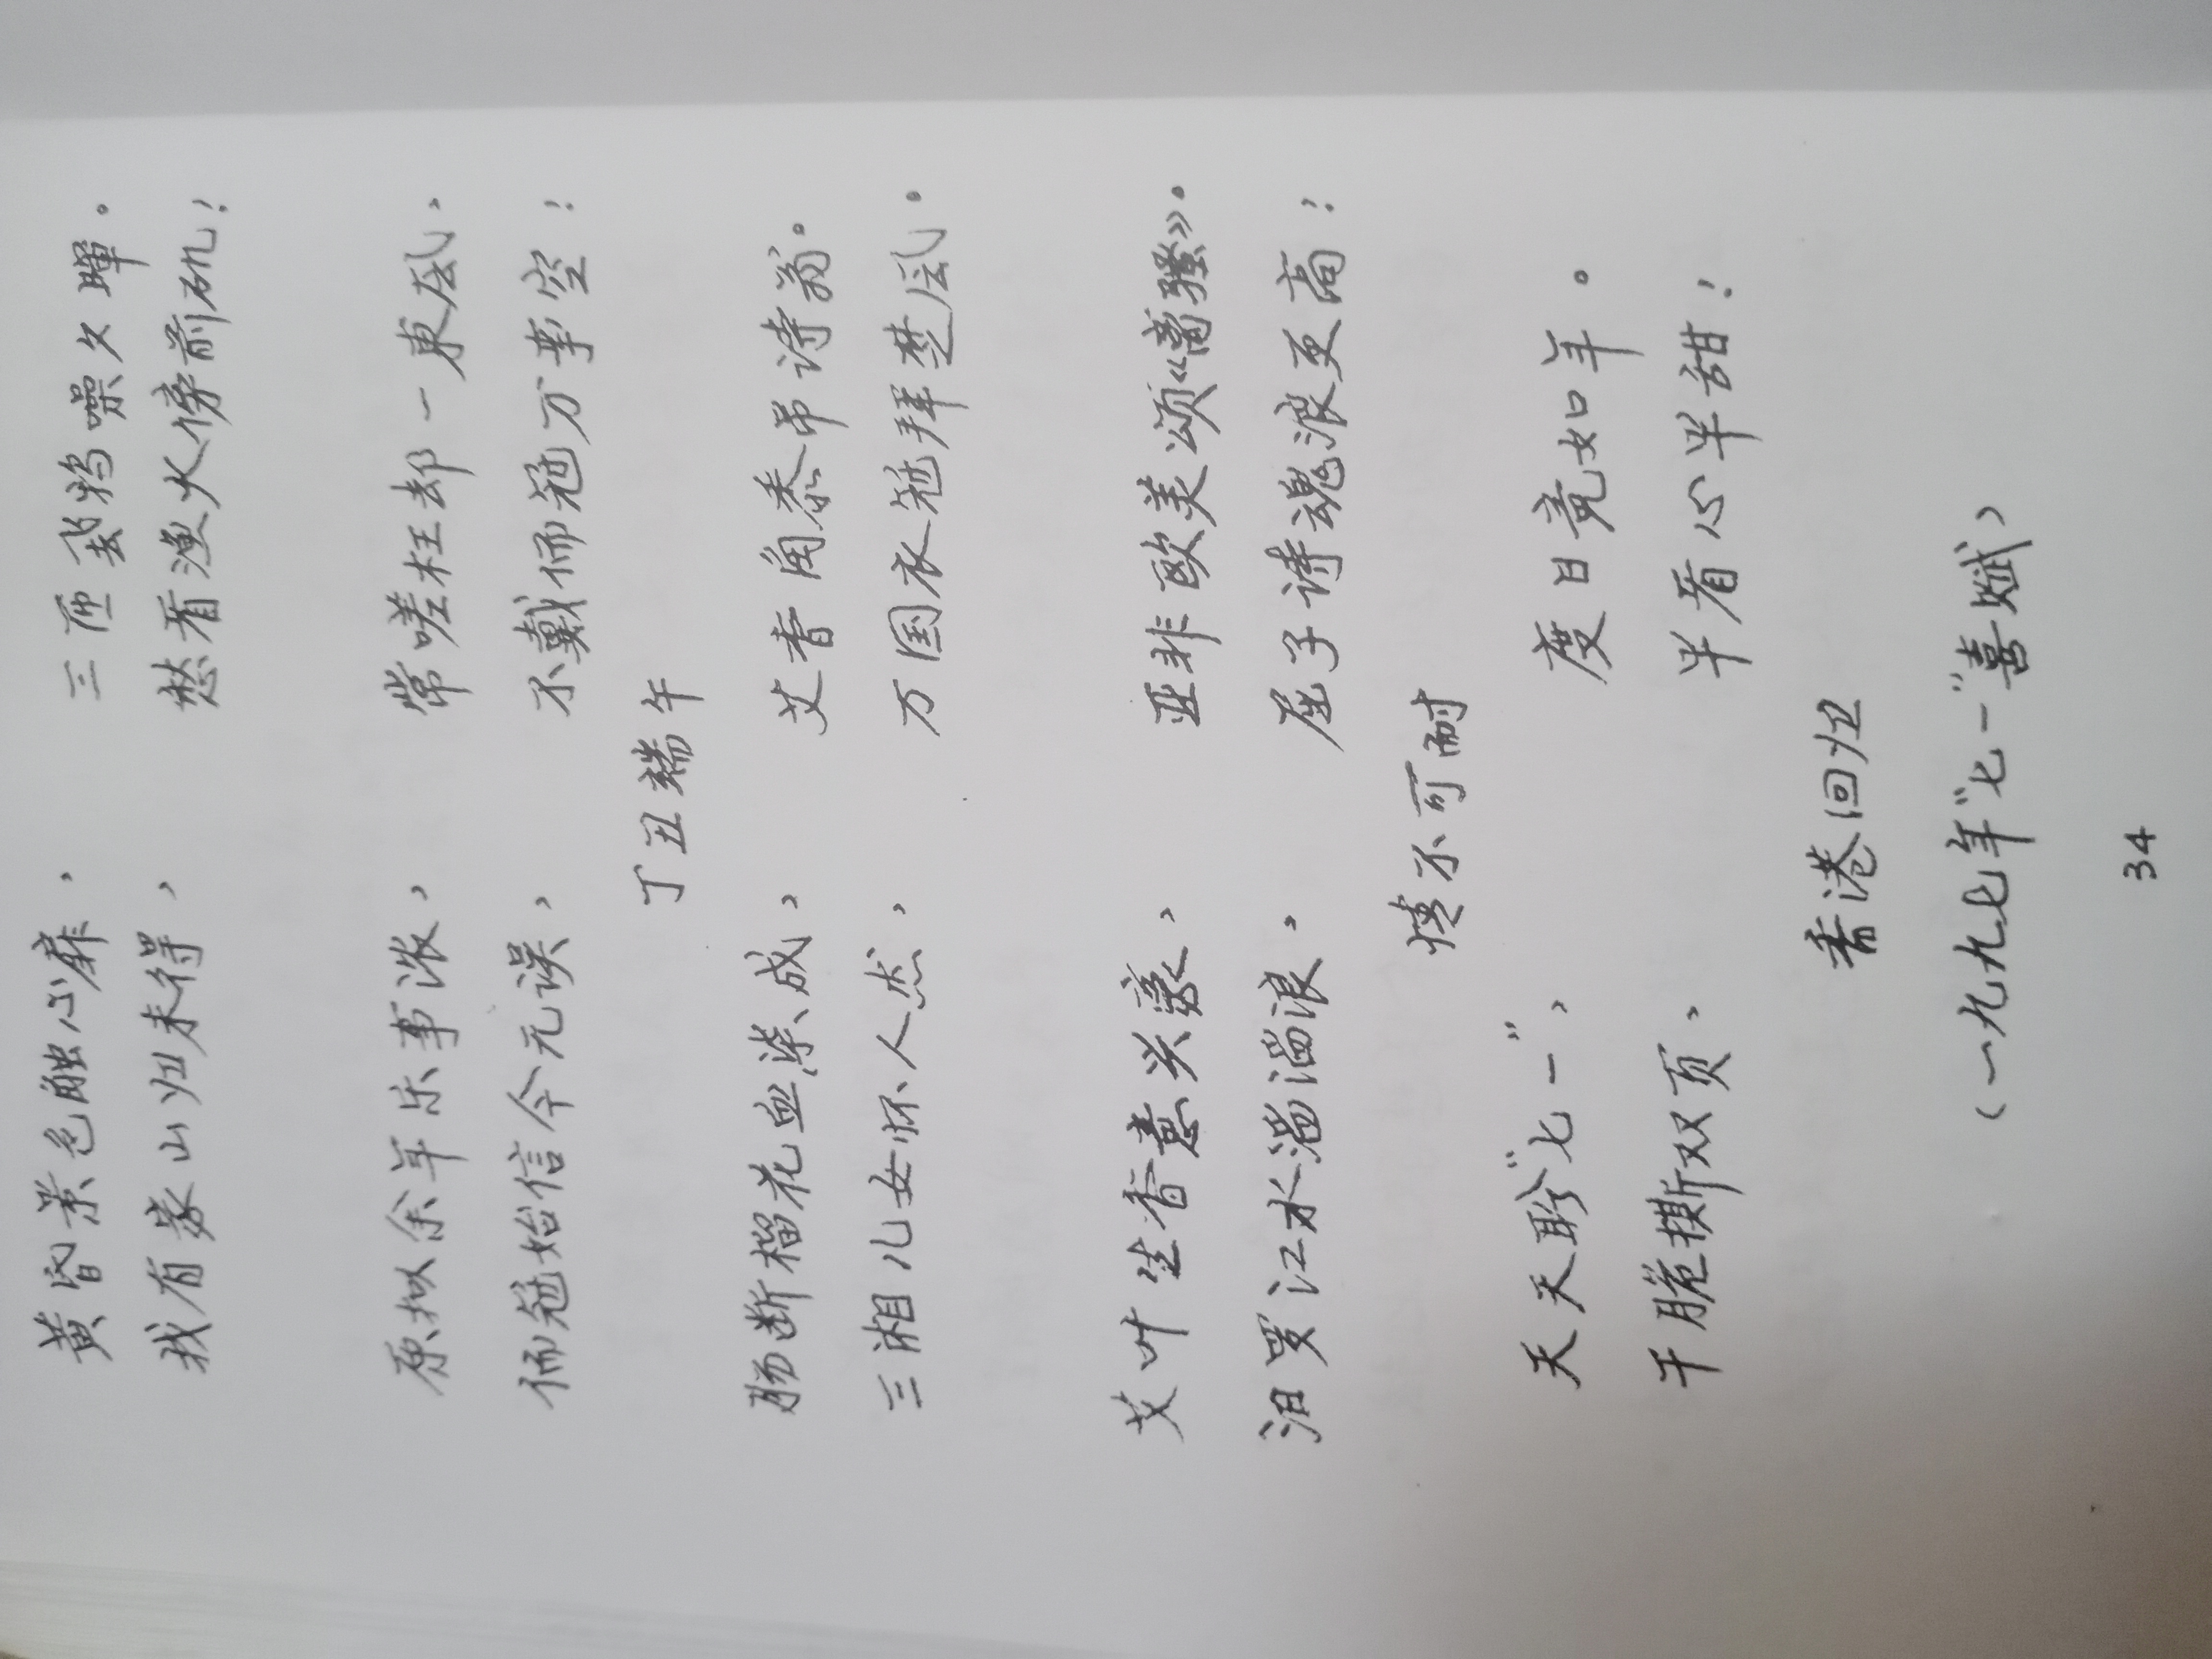 黄昏景色触心扉， 三匝鸦噪夕暉。
我有家山归未得， 愁看渔火傍前矶！
原拟余年乐事浓， 常嗟枉却一東风，
儒冠始信今元误， 不戴儒冠万事空！
丁丑端午
肠断榴花血染成， 艾香角黍吊诗翁。
三湘儿女怀人杰， 万国衣冠拜楚风。
艾叶生香意兴豪， 亚非欧美颂《离骚》。
汨罗江水滔滔浪， 屈子诗魂浪更高！
情不可耐
天天盼“七一”， 度日竟如年。
干脆撕双页， 半看心半甜！
香港回归
（一九九七年“七一”喜赋）
34